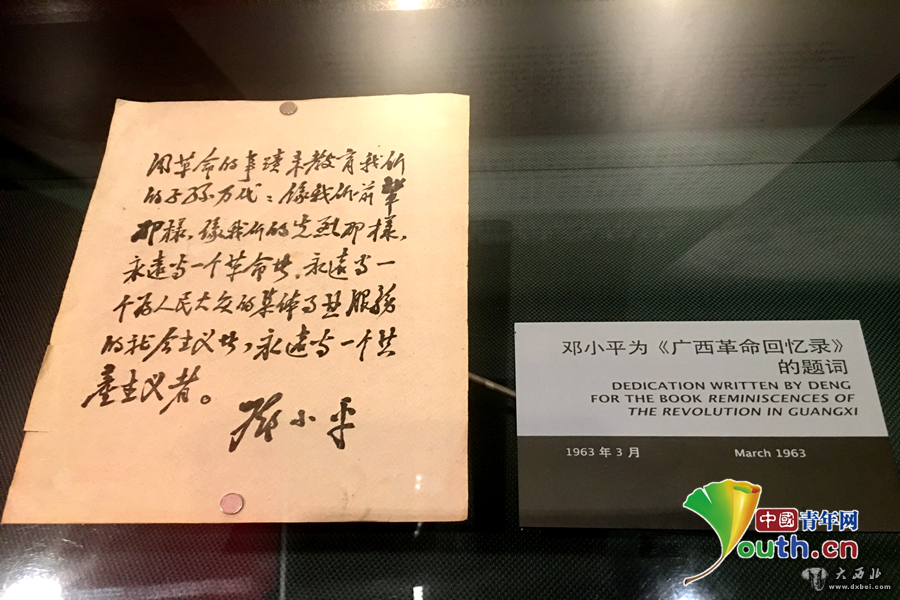 用革命的事蹟来教育我們
的子孫万代：像我們前輩
那樣，像我們的先烈那樣，
永遠当一个革命者，永遠当一
个为人民大众的集体事业服務
的社会主义者，永遠当一个共
產主义者。
邓小平
邓小平为《广西革命回忆录》
的题词
DEDICATION WRITTEN BY DENG
FOR THE BOOK REMINISCENCES OF
THE REVOLUTION IN GUANGXI
1963 年 3 月
March 1963
中國青年网
Youth.cn
大西北
www.dxbei.com